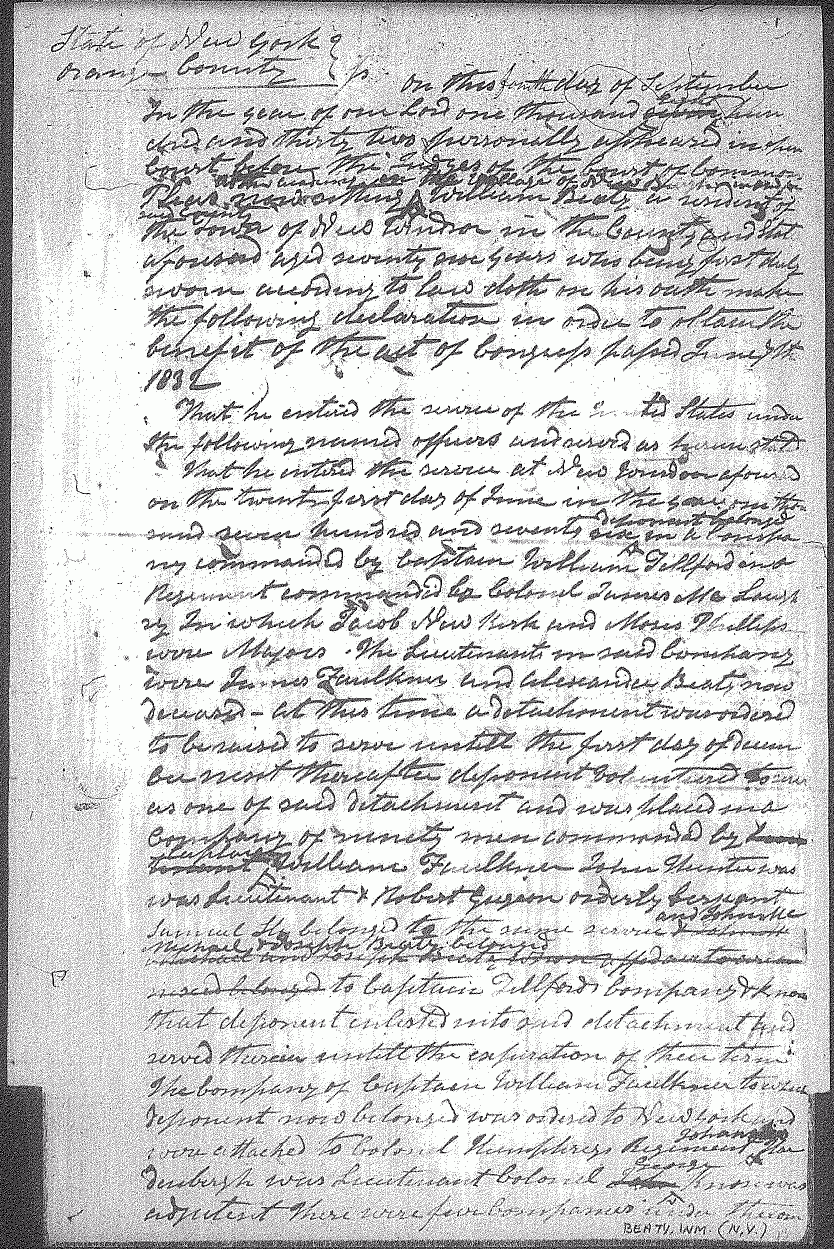 State of New York }
Orange County } ss
On this fourth day of September
In the year of our Lord one thousand eight hun
dred and thirty two personally appeared in open
Court before the Judges of the Court of Common
Pleas now sitting William Beaty a resident of
the Town of New Windsor in the County and State
aforesaid aged seventy one years who being first duly
sworn according to law doth on his oath make
the following declaration in order to obtain the
benefit of the act of Congress passed June 7th
1832
That he entered the service of the United States under
the following named officers and served as herein stated
That he entered the service at New Windsor aforesaid
on the twenty first day of June in the year one thou
sand seven hundred and seventy six deponent belonged in a Compa
ny commanded by Captain William Tellford in a
Regiment commanded by Colonel James McClaugh
ry In which Jacob New Kirk and Moses Phillips
were Majors. The Lieutenants in said Company
were James Faulkner and Alexander Beaty now
deceased - at this time a detachment was ordered
to be raised to serve untill the first day of Decem
ber next thereafter deponent volunteered to serve
as one of said detachment and was placed in a
Company of ninety men commanded by
Captain William Faulkner John Hunter was
was Lieutenant & Robert Gregson orderly Sergeant
Samuel Sly belonged to the same service and John
Michael & Joseph Beaty belonged
to Captain Tellfords Company & know
that deponent enlisted into said detachment and
served therein untill the expiration of their term
The Company of Captain William Faulkner to which
deponent now belonged was ordered to New York and
were attached to Colonel Humphreys Regiment Johannes Har
denbergh was Lieutenant Colonel George Snow was
adjutent There were five Companies under them
BEATY, WM. (N.Y.)